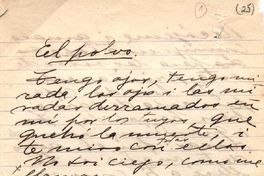 (25)
El polvo.
Tengo ojos, tengo mi
rada, los ojos i las mi
radas derramadas en
mi por los tuyos, que
quebró la muerte, i
te miro con todas ellas.
No soi ciego, como me